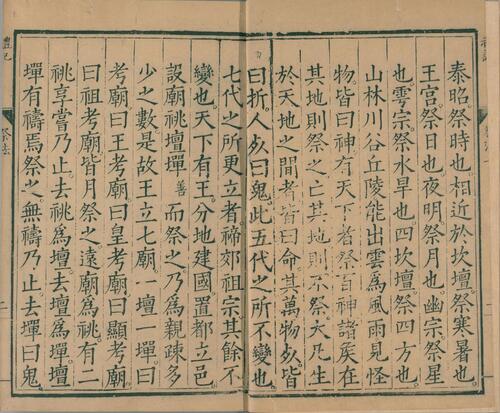 泰昭祭時也相近於坎壇祭寒暑也
王宮祭日也夜明祭月也幽宗祭星
也雩宗祭水旱也四坎壇祭四方也
山林川谷丘陵能出雲爲風雨見怪
物皆曰神有天下者祭百神諸矦在
其地則祭之亡其地則不祭大凡生
於天地之間者皆曰命其萬物死皆
曰折人死曰鬼此五代之所不變也
七代之所更立者禘郊祖宗其餘不
變也天下有王分地建國置都立邑
設廟祧壇墠善而祭之乃爲親疎多
少之數是故王立七廟一壇一墠曰
考廟曰王考廟曰皇考廟曰顯考廟
曰祖考廟皆月祭之遠廟爲祧有二
祧享嘗乃止去祧爲壇去壇爲墠壇
墠有禱焉祭之無禱乃止去墠曰鬼
禮記 祭法 二